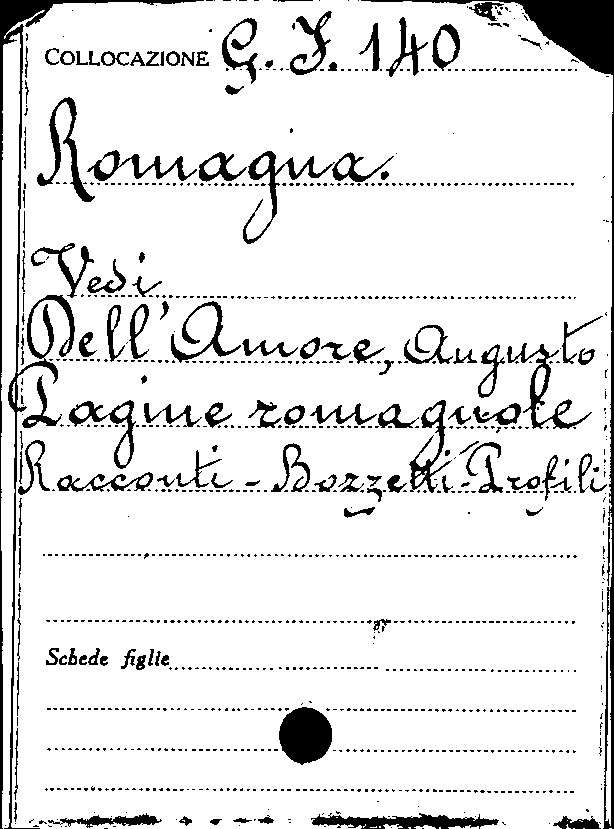 COLLOCAZIONE G. F. 140
Romagna.
Vedi
Dell'Amore, Augusto
Pagine romagnole
Racconti - Bozzetti - Profili
Schede figlie